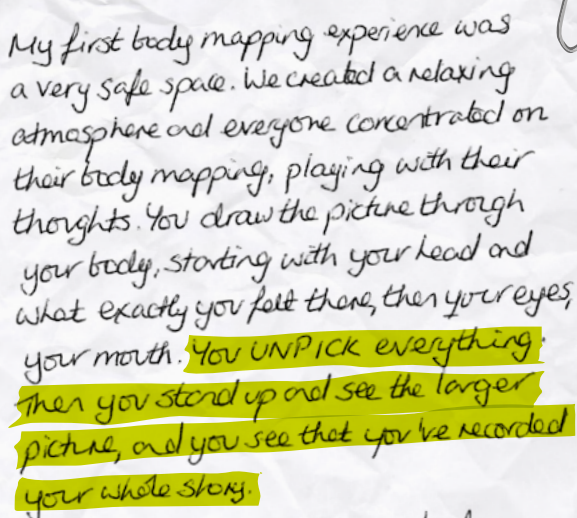 My first body mapping experience was
a very safe space. We created a relaxing
atmosphere and everyone concentrated on
their body mapping, playing with their
thoughts. You draw the picture through
your body, starting with your head and
what exactly you felt there, then your eyes,
your mouth. You UNPICK everything.
Then you stand up and see the larger
picture, and you see that you've recorded
your whole story.